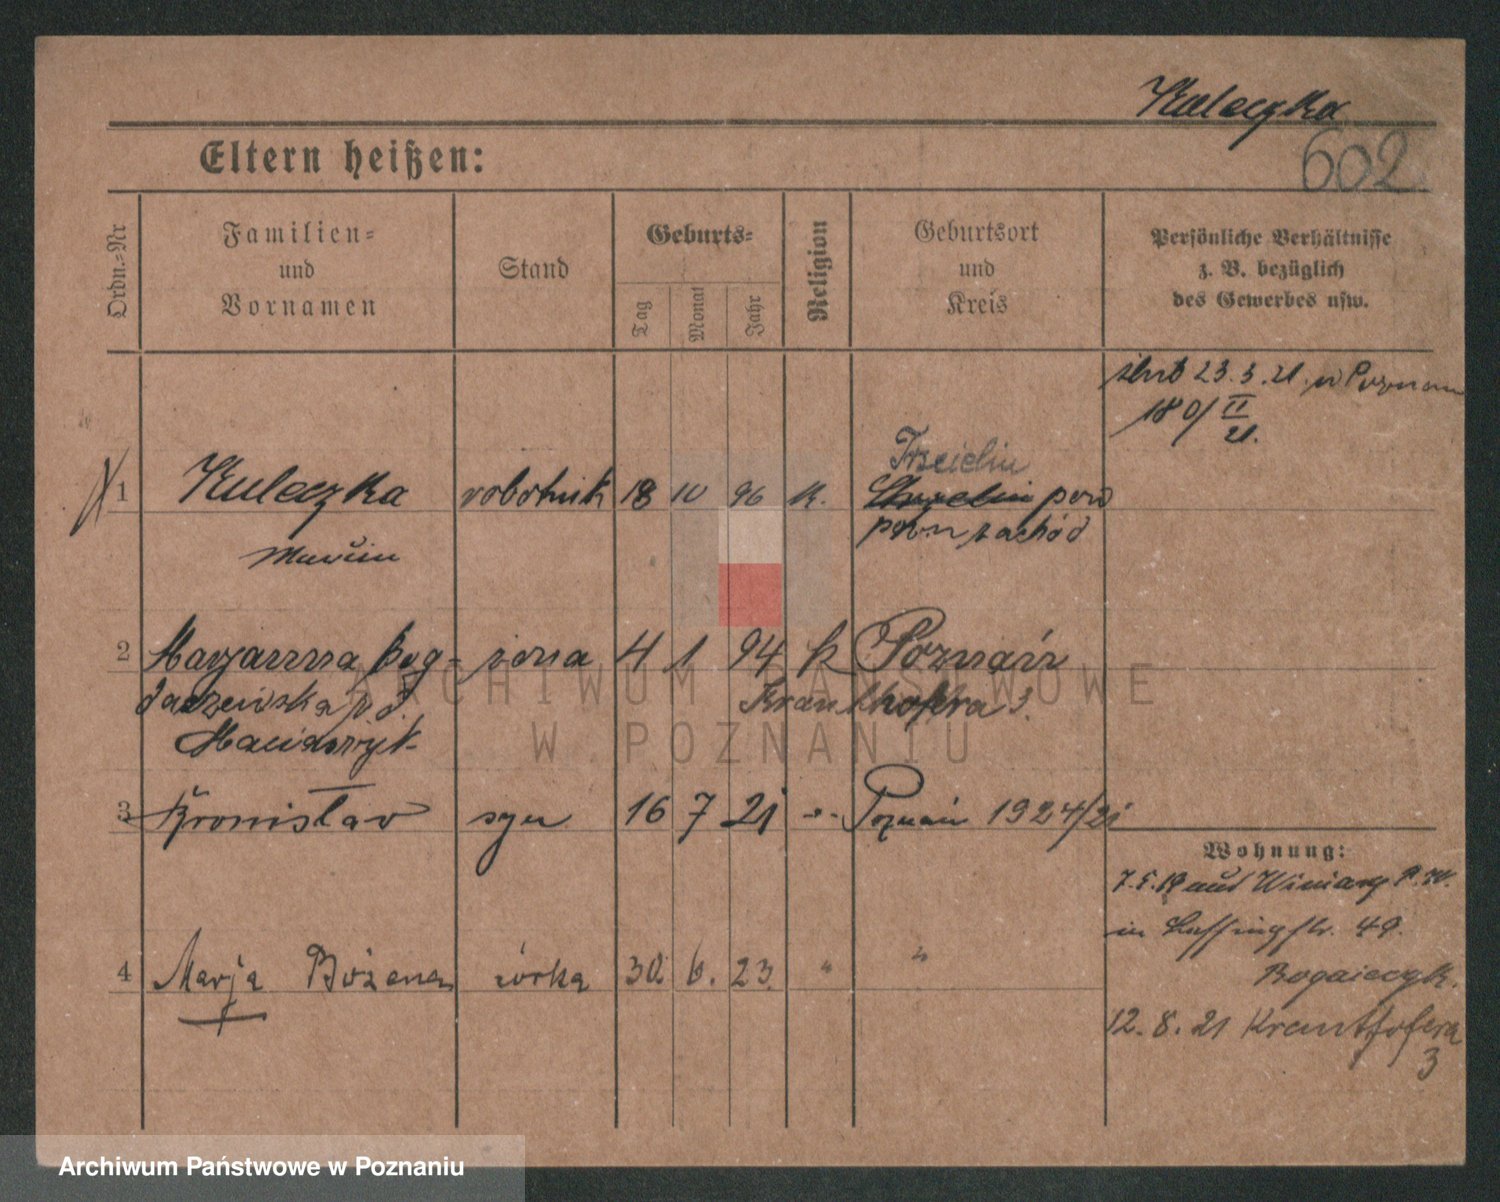 Kuleczka
602
Eltern heißen:
Ordn.-Nr
Familien-
und
Vornamen
Stand
Geburts-
Tag
Monat
Jahr
Religion
Geburtsort
und
Kreis
Persönliche Verhältnisse
z. B. bezüglich
des Gewerbes usw.
ślub 23.3.21. w Poznaniu
180/II
21.
Trzcielin
1 Kuleczka robotnik 18 10 96 k. pow
Marcin pozn zachód
2 Marjanna Bog- żona 4 1 94 k Poznań
daszewska p. d. Kranthofra 3.
Maciaszyk
3 Bronisław syn 16 7 21 -"- Poznań 1924/21
Wohnung:
7.5.19 aus Winiary P.W.
in Lessingstr. 49.
4 Marja Bożena córka 30 6. 23. " "
12.8.21 Kranthofera
3
ARCHIWUM PAŃSTWOWE
W POZNANIU
Archiwum Państwowe w Poznaniu